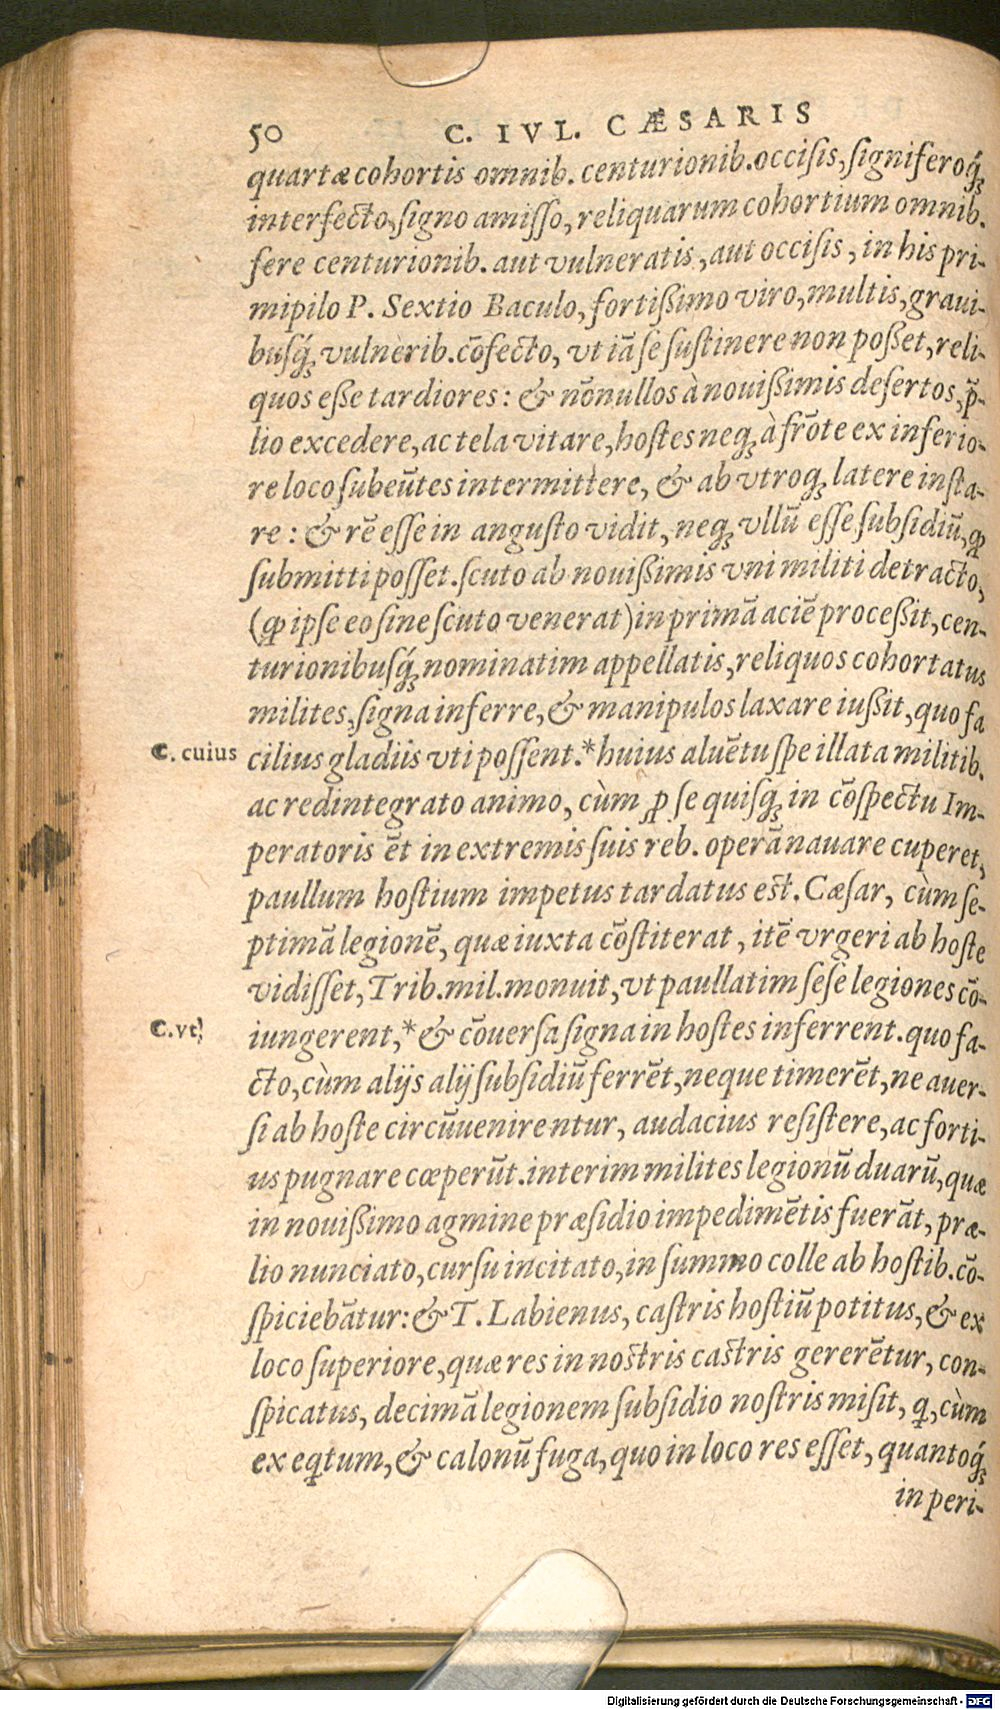 50 C. IVL. CÆSARIS
quartæ cohortis omnib. centurionib. occiſis, ſigniferoq́;
interfecto, ſigno amiſſo, reliquarum cohortium omnib.
fere centurionib. aut vulneratis, aut occiſis, in his pri-
mipilo P. Sextio Baculo, fortißimo viro, multis, graui-
buſq́; vulnerib. cõfecto, vt iã ſe ſuſtinere non poßet, reli-
quos eße tardiores: & nõnullos à nouißimis deſertos, p̃-
lio excedere, ac tela vitare, hoſtes neq; à frõte ex inferio-
re loco ſubeũtes intermittere, & ab vtroq; latere inſta-
re: & rẽ eſſe in anguſto vidit, neq; vllũ eſſe ſubſidiũ, ꝙ
ſubmitti poſſet. ſcuto ab nouißimis vni militi detracto,
(ꝙ ipſe eo ſine ſcuto venerat) in primã aciẽ proceßit, cen-
turionibuſq́; nominatim appellatis, reliquos cohortatus
milites, ſigna inferre, & manipulos laxare iußit, quo fa
C. cuius
cilius gladiis vti poſſent. * huius aluẽtu ſpe illata militib.
ac redintegrato animo, cùm ꝓ ſe quiſq́; in cõſpectu Im-
peratoris ẽt in extremis ſuis reb. operã nauare cuperet,
paullum hoſtium impetus tardatus eſt. Cæſar, cùm ſe-
ptimã legionẽ, quæ iuxta cõſtiterat, itẽ vrgeri ab hoſte
vidiſſet, Trib. mil. monuit, vt paullatim ſeſe legiones cõ-
C. vt
iungerent, * & cõuerſa ſigna in hoſtes inferrent. quo fa-
cto, cùm alijs alij ſubſidiũ ferrẽt, neque timerẽt, ne auer-
ſi ab hoſte circũuenirentur, audacius reſiſtere, ac forti-
us pugnare cœperũt. interim milites legionũ duarũ, quæ
in nouißimo agmine præſidio impedimẽtis fuerãt, præ-
lio nunciato, curſu incitato, in ſummo colle ab hoſtib. cõ-
ſpiciebãtur: & T. Labienus, caſtris hoſtiũ potitus, & ex
loco ſuperiore, quæ res in noſtris caſtris gererẽtur, con-
ſpicatus, decimã legionem ſubſidio noſtris miſit, q, cùm
ex eqtum, & calonũ fuga, quo in loco res eſſet, quantoq́;
in peri-
Digitalisierung gefördert durch die Deutsche Forschungsgemeinschaft - DFG